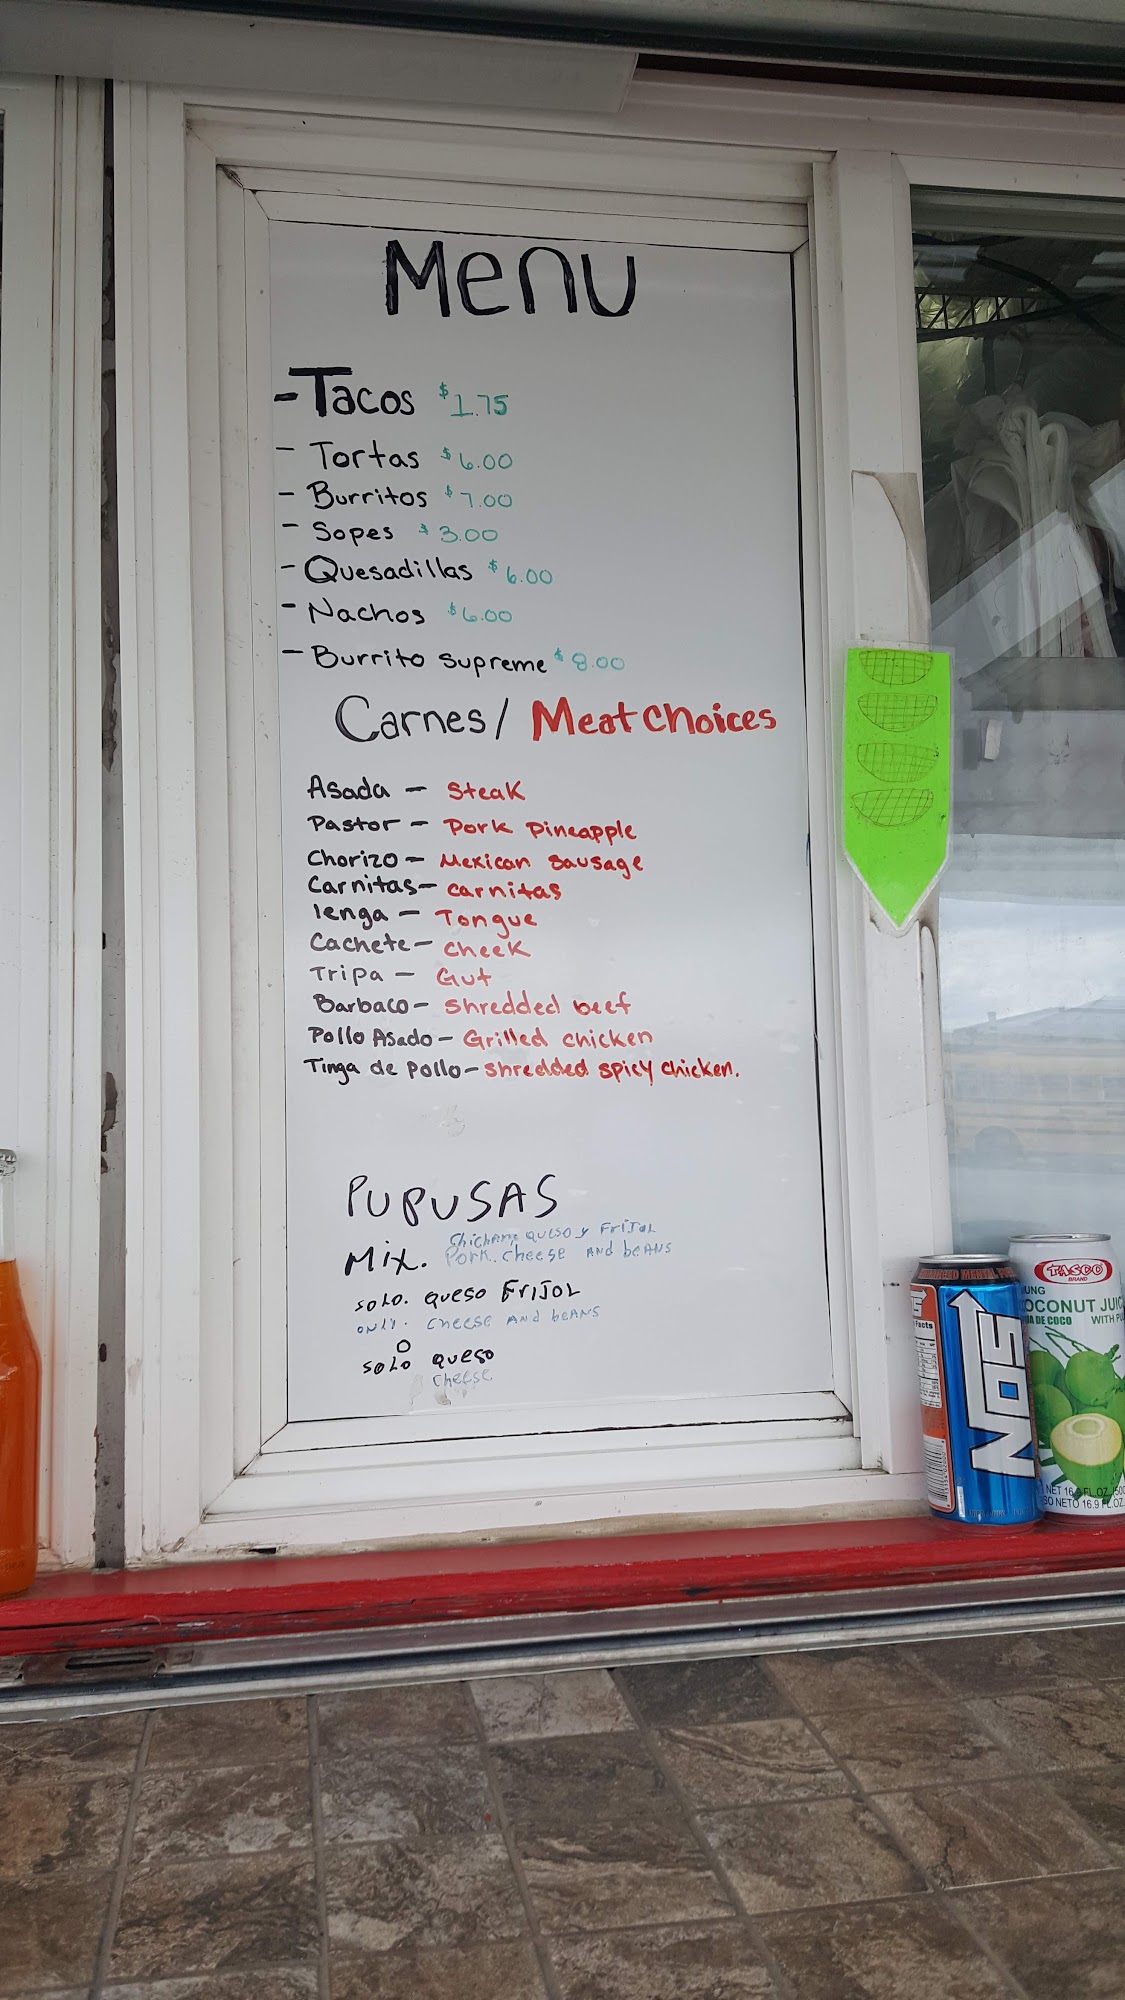 Menu
- Tacos $1.75
- Tortas $6.00
- Burritos $7.00
- Sopes $3.00
- Quesadillas $6.00
- Nachos $6.00
- Burrito supreme $8.00
Carnes/ Meat choices
Asada - Steak
Pastor - Pork pineapple
Chorizo - Mexican sausage
Carnitas - carnitas
lenga - Tongue
Cachete - cheek
Tripa - Gut
Barbaco - shredded beef
Pollo Asado - Grilled chicken
Tinga de pollo - shredded spicy chicken.
PUPUSAS
queso y FriJol
Mix. Pork. cheese AND beANS
solo. queso FriJol
only. cheese AND beANS
O
solo queso
cheese
NOS
Facts
TASCO
BRAND
OCONUT JUIC
UA DE COCO WITH PU
NET 16.9 FL.OZ.
SO NETO 16.9 FL.OZ.